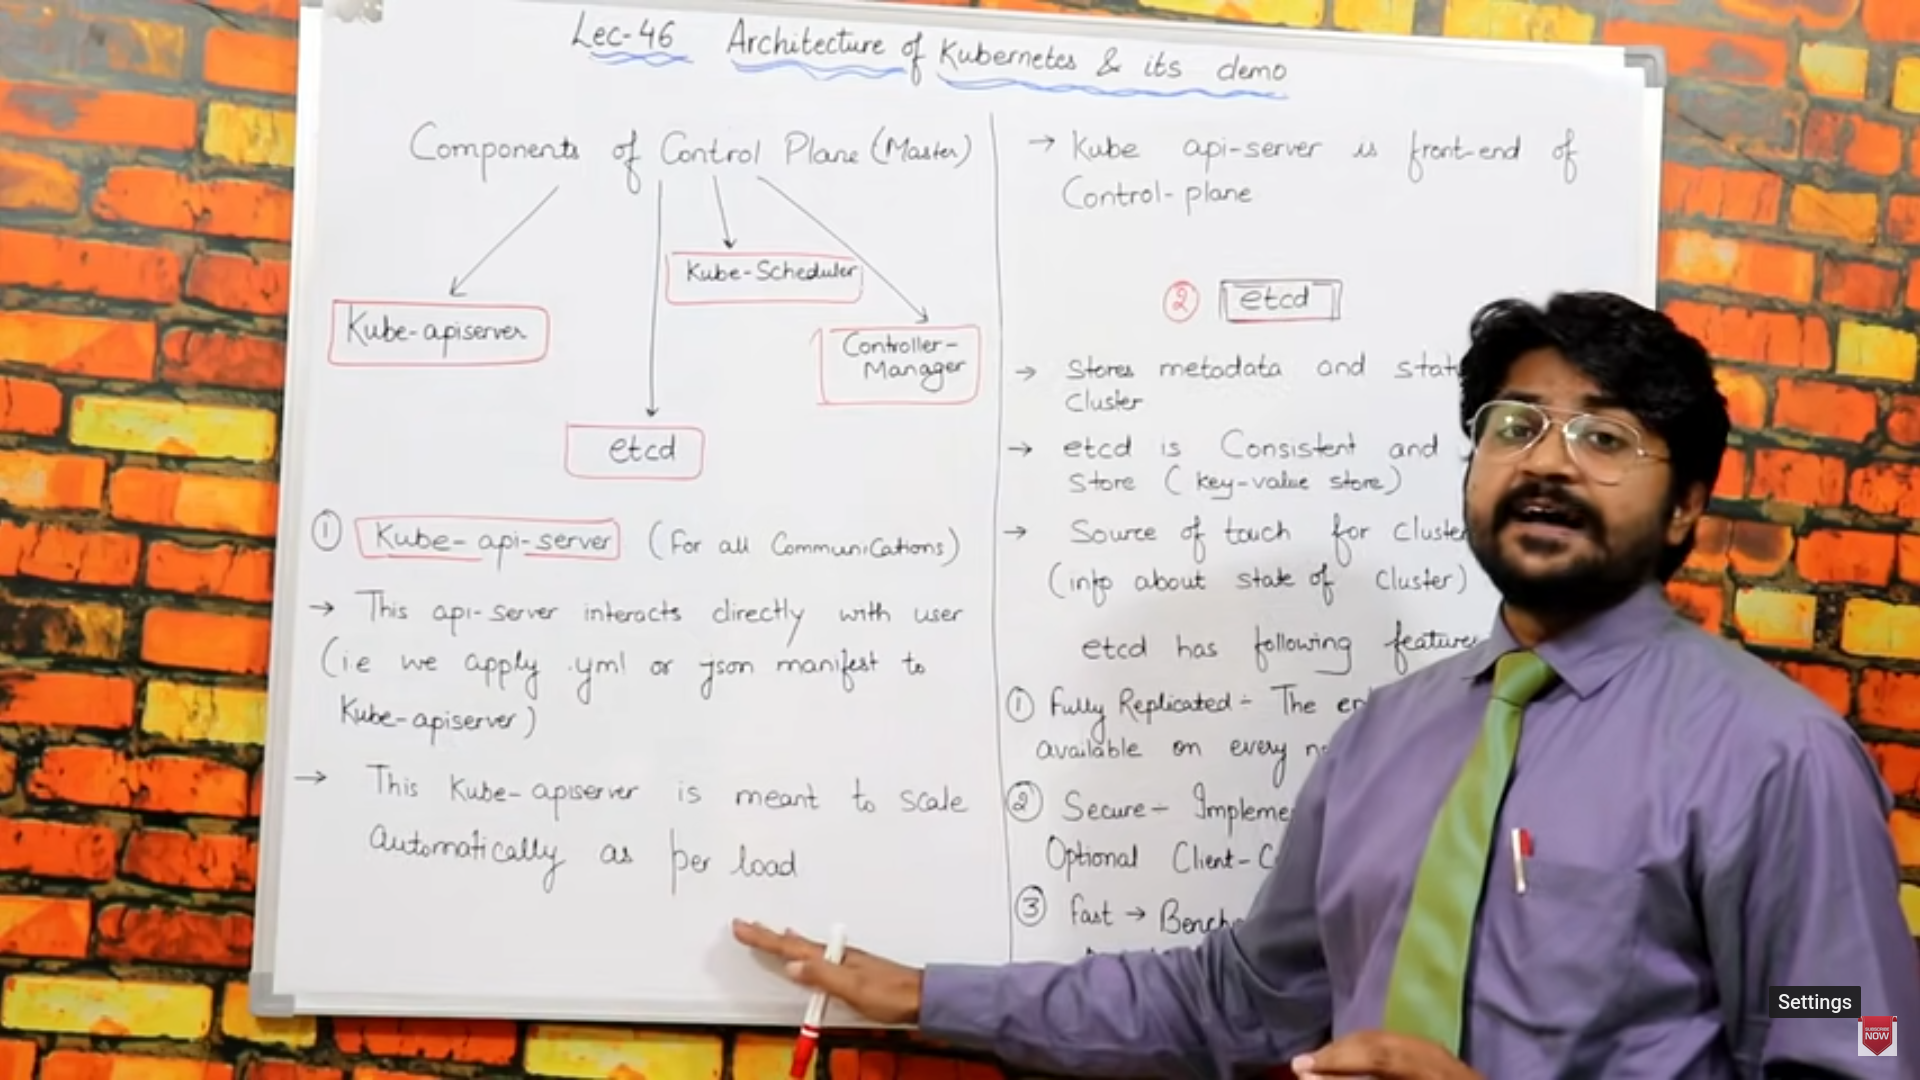 Lec-46 Architecture of Kubernetes & its demo
Components of Control Plane (Master)
Kube-apiserver
etcd
Kube-Scheduler
Controller-
Manager
① Kube-api-server (For all Communications)
→ This api-server interacts directly with user
(ie we apply .yml or json manifest to
Kube-apiserver)
→ This Kube-apiserver is meant to scale
automatically as per load
→ Kube api-server is front-end of
Control-plane
② etcd
→ Stores metadata and
Cluster
→ etcd is Consistent and
Store (key-value store)
→ Source of touch for Cluster
(info about state of Cluster)
etcd has following
① Fully Replicated - The
available on every
② Secure -
Optional
③ Fast →
Settings
SUBSCRIBE
NOW